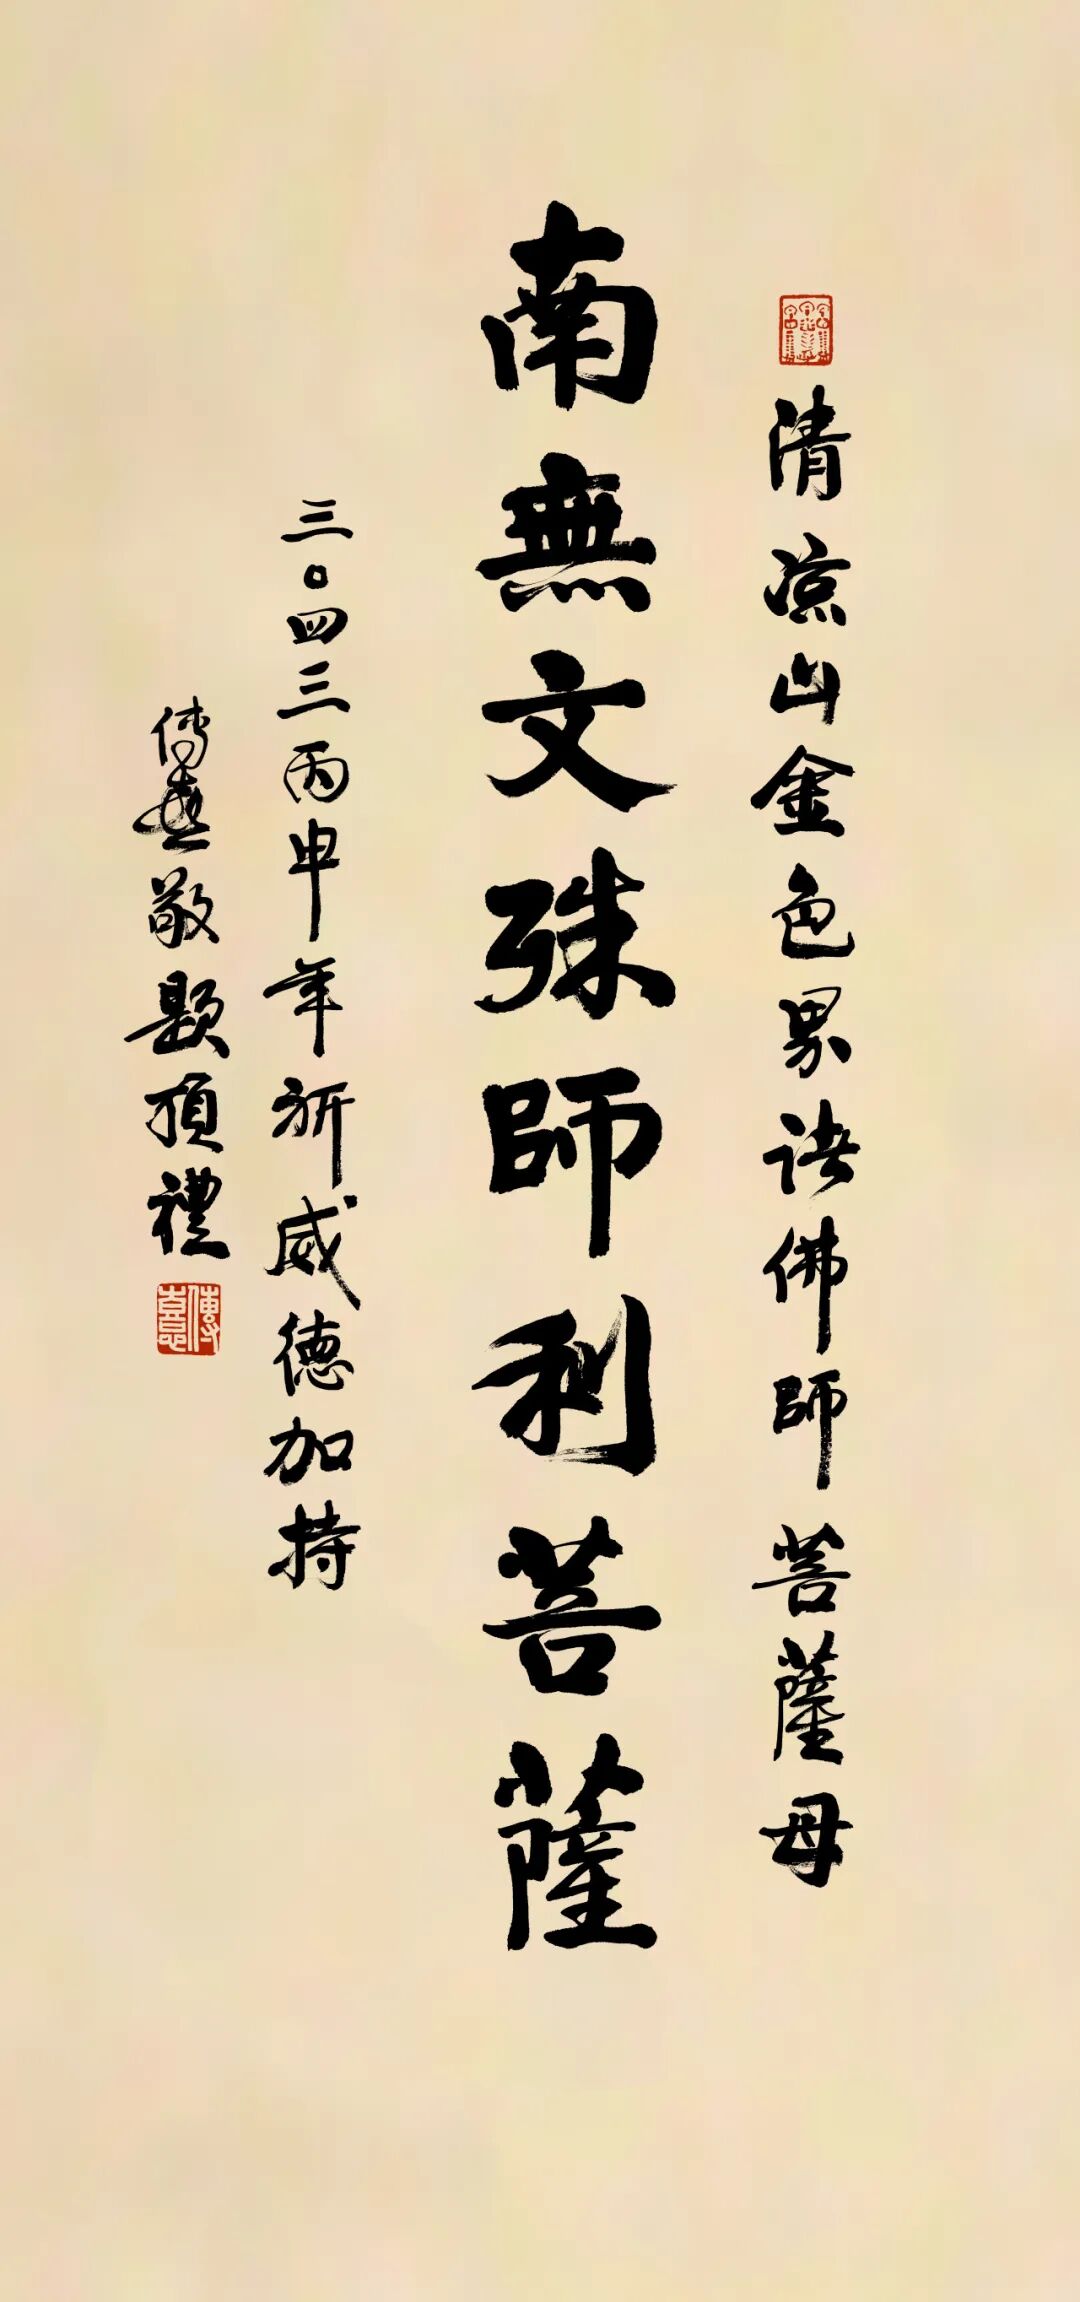 清涼山金色界諸佛師菩薩母
南無文殊師利菩薩
三〇四三丙申年祈威德加持
傳喜敬題頂禮
傳喜